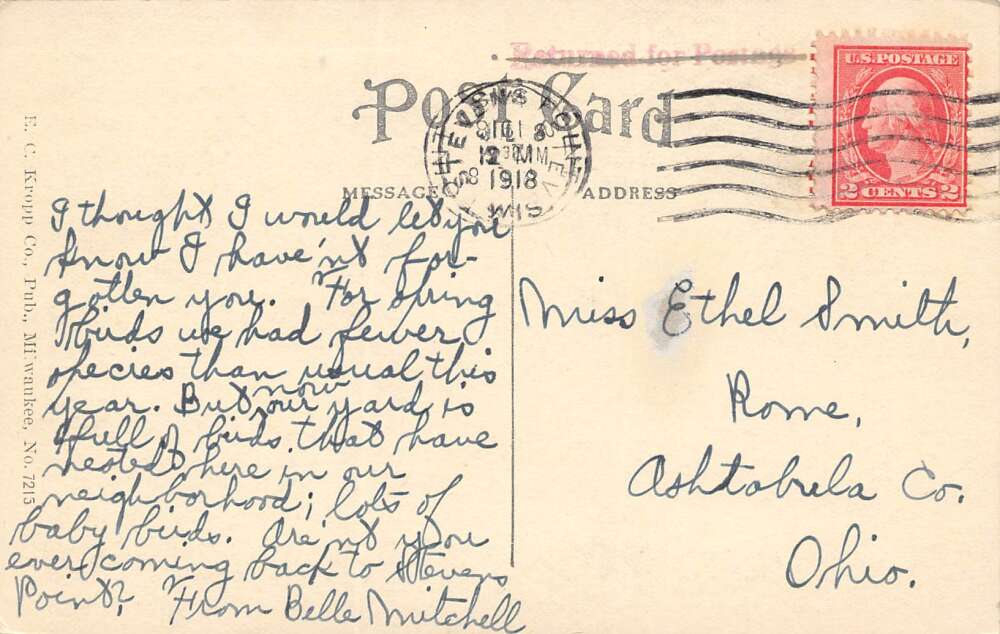 Returned for Postage
U.S. POSTAGE
2 CENTS 2
Post Card
STEVENS POINT
JUL 8
12 M
1918
WIS.
MESSAGE
ADDRESS
E. C. Kropp Co., Pub., Milwaukee, No. 7215
I thought I would let you
know I have'nt for-
gotten you. For spring
birds we had fewer
species than usual this
year. But now our yard is
full of birds that have
nested here in our
neighborhood; lots of
baby birds. Are'nt you
ever coming back to Stevens
Point? From Belle Mitchell
Miss Ethel Smith,
Rome,
Ashtabula Co.
Ohio.